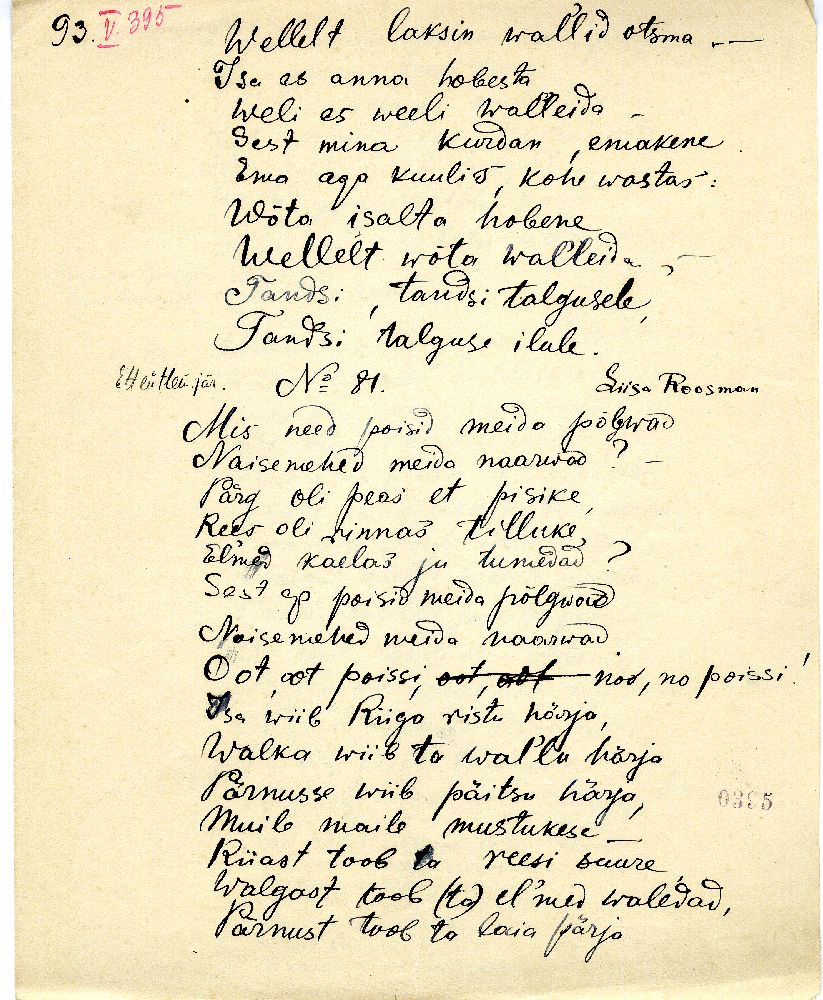 93. V. 395
Wellelt laksin wal'lid otsma . —
Isa es anna hobesta
Weli es weeli walleida –
Sest mina kurdan, emakene.
Ema aga kuulis, kohe wastas:
Wõta isalta hobene
Wellelt wõta walleida, –
Tandsi, tandsi talgusele,
Tandsi talguse ilule.
No 81. Liisa Roosman
Mis need poisid meida põlgwad
Naisemehed meida naarwad? –
Pärg oli peas et pisike,
Rees oli rinnas tilluke,
El'med kaelas ju tumedad?
Sest ep poisid meida põlgwad
Naisemehed meida naarwad.
Oot, oot poissi, oot, oot noo, no poissi!
Isa wiib Riiga ristu härja,
Walka wiib ta wal'lu härja
Pärnusse wiib päitsu härja,
Muile maile mustukese –
Riiast toob ta reesi suure,
Walgast toob (ta) el'med waledad,
Pärnust toob ta laia pärja
0395